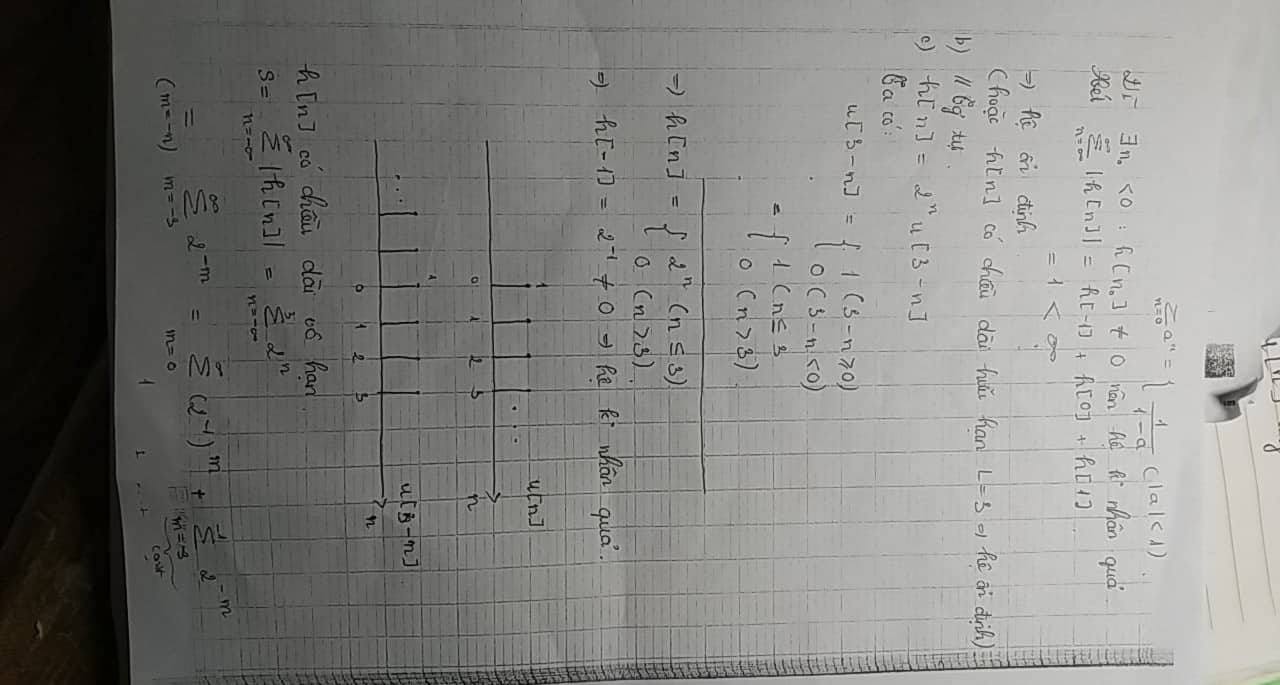 ∑_{n=0} aⁿ = { 1/(1-a) (|a|<1).
Vì ∃n₀ <0 : h[n₀] ≠ 0 nên hệ k nhân quả.
Xét ∑_{n=∞}^{∞} |h[n]| = h[-1] + h[0] + h[1]
= 1 < ∞
=> hệ ổn định
(hoặc h[n] có chiều dài hữu hạn L=3 => hệ ổn định)
b) // tự.
c) h[n] = 2ⁿ u[3-n]
Ta có:
u[3-n] = { 1 (3-n≥0)
0 (3-n<0)
= { 1 (n≤ 3
0 (n>3).
=> h[n] = { 2ⁿ (n≤3)
0 (n>3).
=> h[-1] = 2⁻¹ ≠ 0 => hệ k nhân quả.
1 u[n]
0 1 2 3 n
1 u[3-n]
0 1 2 3 n
h[n] có chiều dài vô hạn.
S= ∑_{n=-∞}^{∞} |h[n]| = ∑_{n=-∞}^{3} 2ⁿ
= (m=-n) ∑_{m=-3}^{∞} 2^{-m} = ∑_{m=0}^{∞} (2⁻¹)^m + ∑_{m=-3}^{-1} 2^{-m}